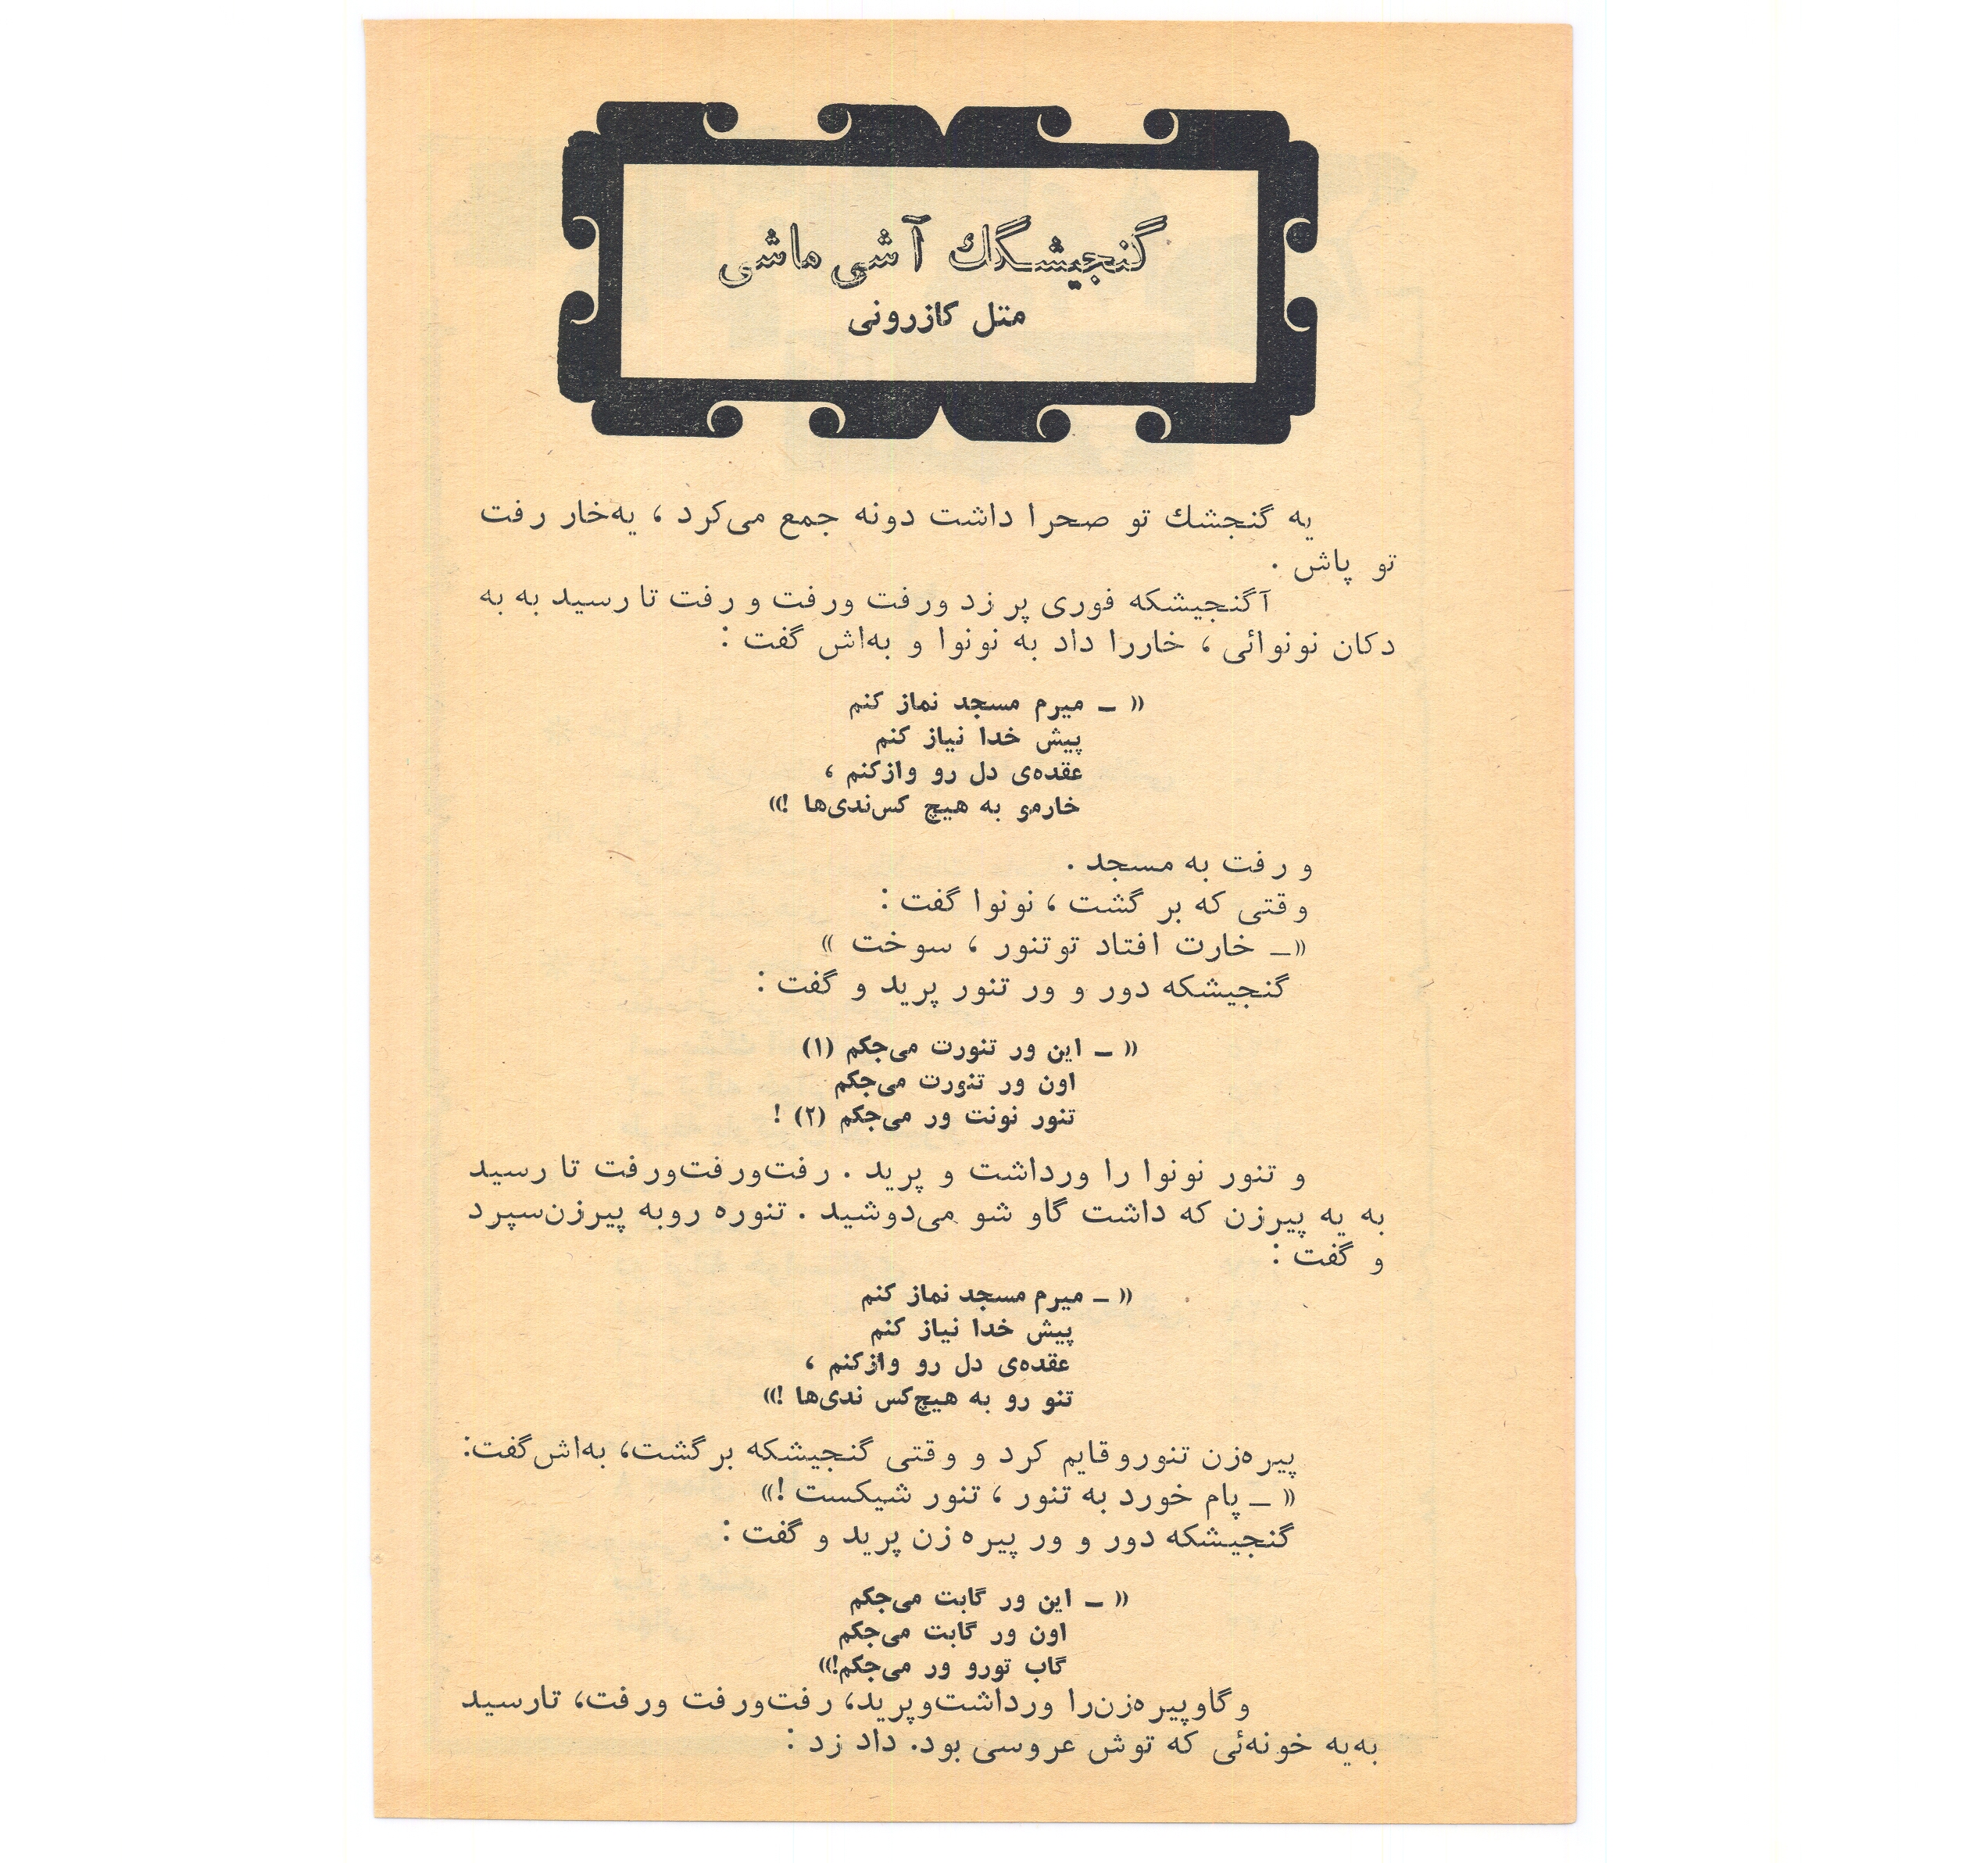 گنجیشگك آشی ماشی
متل كازرونی
یه گنجشك تو صحرا داشت دونه جمع می‌کرد ، یه‌خار رفت
تو پاش .
آگنجیشکه فوری پر زد ورفت ورفت و رفت تا رسید به به
دکان نونوائی ، خاررا داد به نونوا و به‌اش گفت :
« – میرم مسجد نماز کنم
پیش خدا نیاز کنم
عقده‌ی دل رو وازکنم ،
خارمو به هیچ کس‌ندی‌ها !»
و رفت به مسجد .
وقتی که برگشت ، نونوا گفت :
«– خارت افتاد توتنور ، سوخت »
گنجیشکه دور و ور تنور پرید و گفت :
« – این ور تنورت می‌جکم (۱)
اون ور تنورت می‌جکم
تنور نونت ور می‌جکم (۲) !
و تنور نونوا را ورداشت و پرید . رفت‌ورفت‌ورفت تا رسید
به یه پیرزن که داشت گاو شو می‌دوشید . تنوره روبه پیرزن‌سپرد
و گفت :
« – میرم مسجد نماز کنم
پیش خدا نیاز کنم
عقده‌ی دل رو وازکنم ،
تنو رو به هیچ‌کس ندی‌ها !»
پیره‌زن تنوروقایم کرد و وقتی گنجیشکه برگشت، به‌اش‌گفت:
« – پام خورد به تنور ، تنور شیکست !»
گنجیشکه دور و ور پیره زن پرید و گفت :
« – این ور گابت می‌جکم
اون ور گابت می‌جکم
گاب تورو ور می‌جکم!»
وگاوپیره‌زن‌را ورداشت‌وپرید، رفت‌ورفت ورفت، تارسید
به‌یه خونه‌ئی که توش عروسی بود. داد زد :